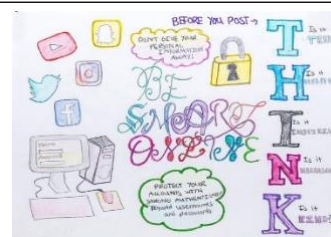 BEFORE YOU POST →
DON'T GIVE YOUR
PERSONAL
INFORMATION
AWAY!
BE
SMART
ONLINE
PROTECT YOUR
ACCOUNTS WITH
STRONG AUTHENTICATION
BEYOND USERNAMES
and passwords
T
Is it
H
Is it
I
Is it
N
Is it
K
Is it
KIND?